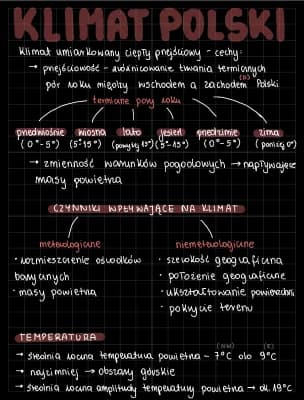 KLIMAT POLSKI
Klimat umiarkowany ciepły przejściowy - cechy:
→ przejściowość - zróżnicowanie trwania termicznych
pór roku między wschodem a zachodem Polski
termiczne pory roku
przedwiośnie wiosna lato jesień przedzimie zima
(0°-5°) (5°-15°) (powyżej 15°) (5°-15°) (0°-5°) (poniżej 0°)
→ zmienność warunków pogodowych → napływające
masy powietrza
CZYNNIKI WPŁYWAJĄCE NA KLIMAT
meteorologiczne niemeteorologiczne
• rozmieszczenie ośrodków • szerokość geograficzna
barycznych • położenie geograficzne
• masy powietrza • ukształtowanie powierzchni
• pokrycie terenu
TEMPERATURA
(NW) (E)
→ średnia roczna temperatura powietrza - 7°C do 9°C
→ najzimniej → obszary górskie
→ średnia roczna amplitudy temperatury powietrza → ok. 19°C